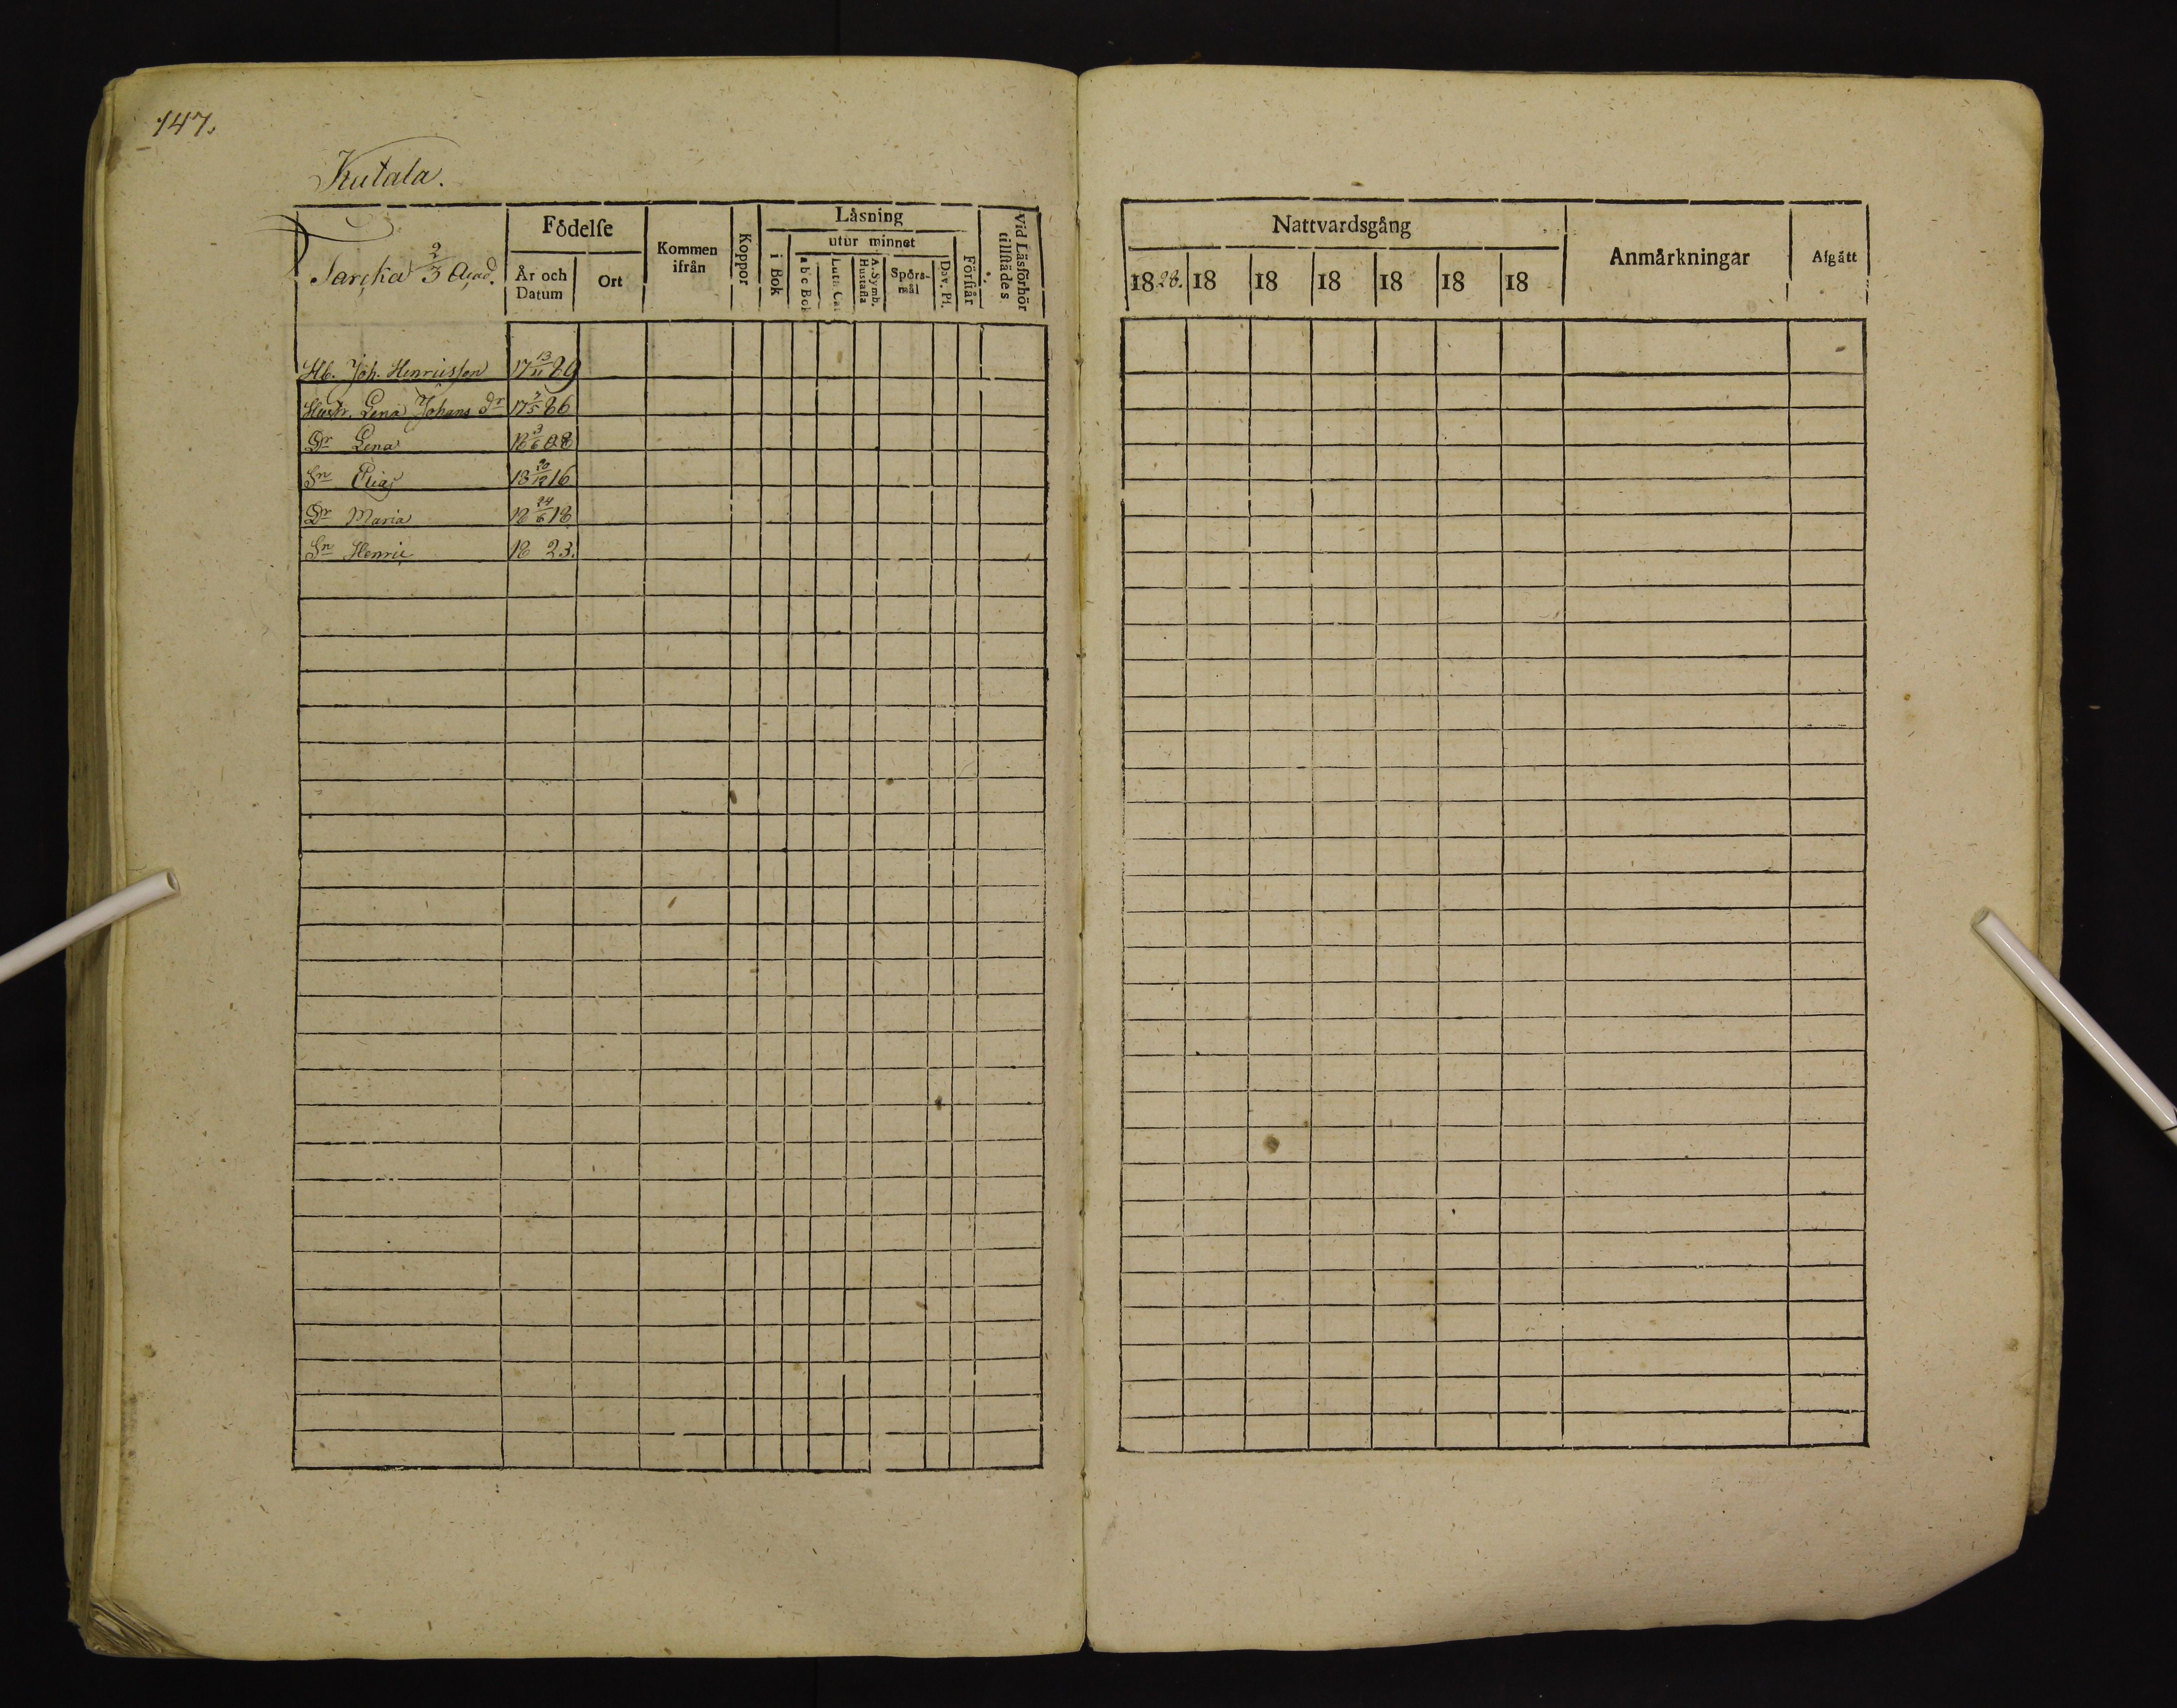 147.
Kutala.
Sarcka 2/3 Acad.
Födelſe
År och Datum
Ort
Kommen ifrån
Koppor
Låsning
i Bok
utur minnet
a b c Bok
Luth. Cat
A. Symb. Hustafla
Spörs-mål
Dav. Pſ.
Förſtår
vid Läsförhör tillſtädes
Hb. Joh. Henricsson 17 13/11 89
Hustr. Lena Johans dr 17 7/5 86
Dr Lena 18 3/6 08
Sn Elias 18 20/12 16
Dr Maria 18 24/6 18
Sn Henric 18 23.
Nattvardsgång
1828. 18 18 18 18 18 18
Anmårkningar
Afgått